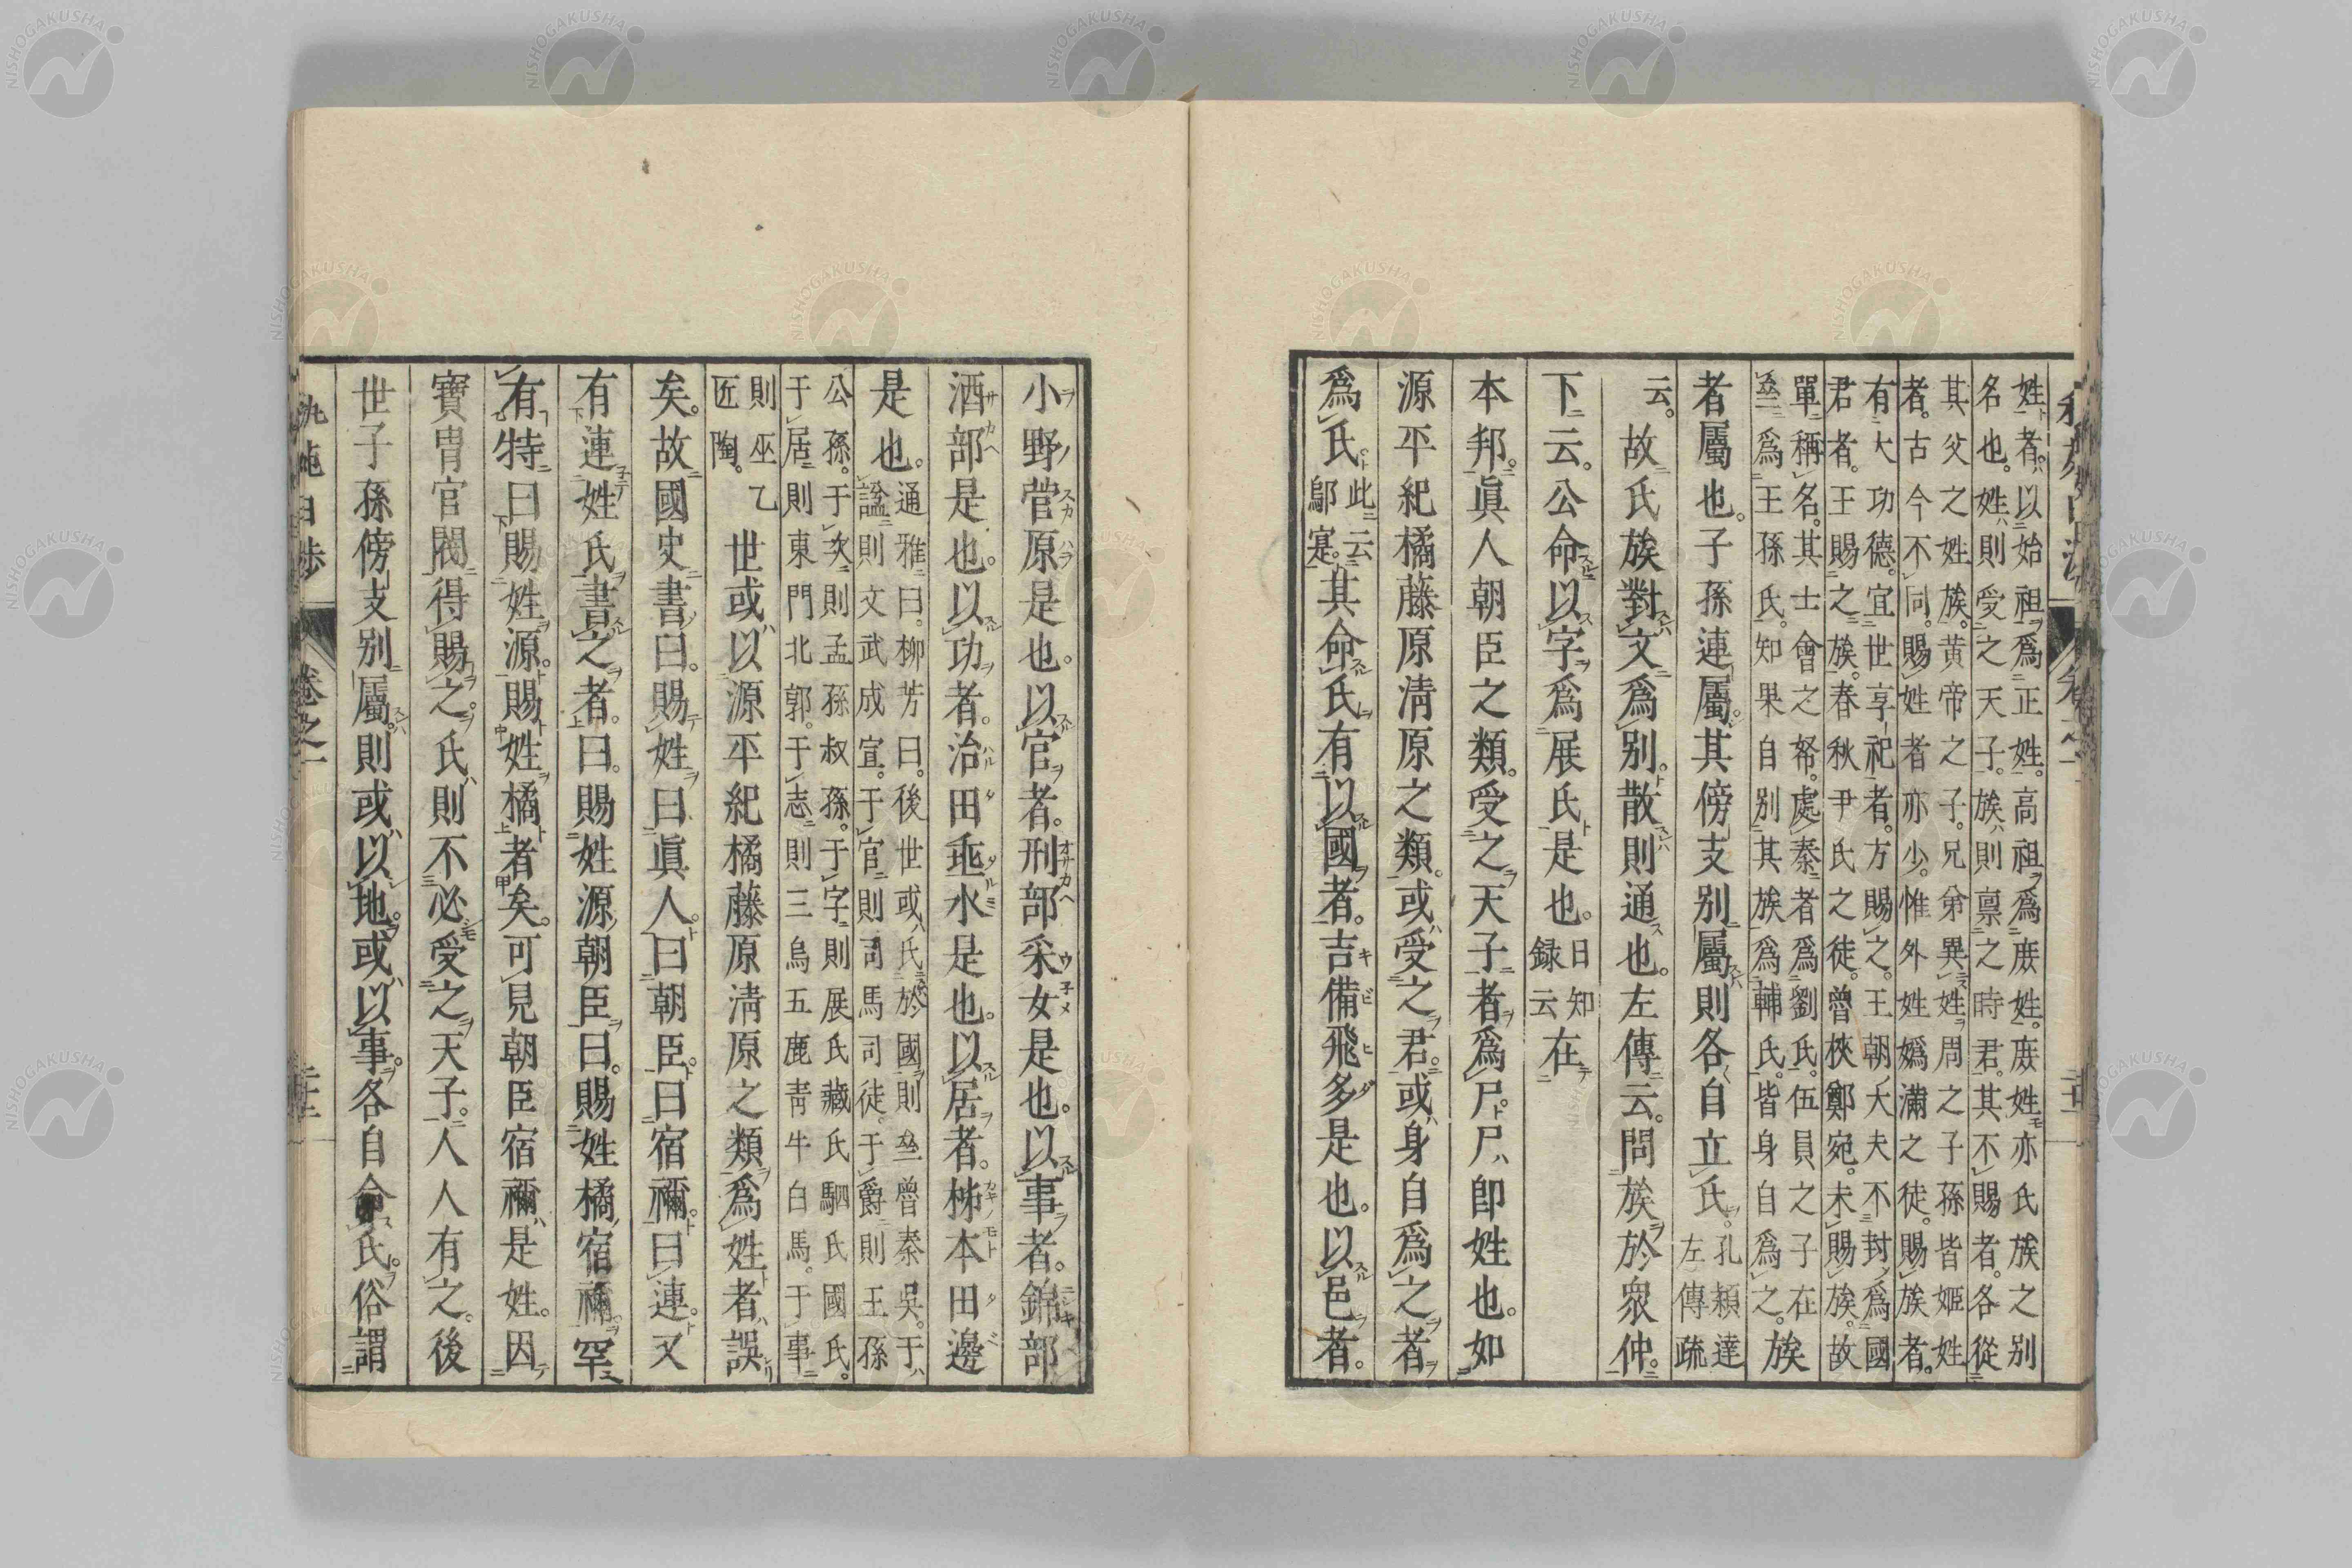 姓者。以始祖爲正姓。高祖爲庻姓。庻姓亦氏族之别
名也。姓則受之天子。族則禀之時君。其不賜者。各從
其父之姓族。黄帝之子。兄弟異姓。周之子孫皆姬姓
者。古今不同。賜姓者亦少。惟外姓嬀滿之徒。賜族者。
有大功德。宜世享祀者。方賜之。王朝大夫不封爲國
君者。王賜之族。春秋尹氏之徒。魯挾鄭宛。未賜族。故
單稱名。其士會之帑。處秦者爲劉氏。伍員之子在
亝爲王孫氏。知果自别其族爲輔氏。皆身自爲之。族
者屬也。子孫連屬。其傍支别屬則各自立氏。孔頴達左傳疏
云。故氏族對文爲别。散則通也。左傳云。問族於衆仲。
下云。公命以字爲展氏是也。日知録云在
本邦。眞人朝臣之類。受之天子者爲尸。尸卽姓也。如
源平紀橘藤原淸原之類。或受之君。或身自爲之者
爲氏。此云鄔寔。其命氏有以國者。吉備飛多是也。以邑者。
小野菅原是也。以官者。刑部采女是也。以事者。錦部
酒部是也。以功者。治田垂水是也。以居者。柿本田邊
是也。通雅曰。柳芳曰。後世或氏於國則亝魯秦吳。于
諡則文武成宣。于官則司馬司徒。于爵則王孫
公孫。于次則孟孫叔孫。于字則展氏臧氏駟氏國氏。
于居則東門北郭。于志則三烏五鹿靑牛白馬。于事
則巫乙匠陶。世或以源平紀橘藤原淸原之類爲姓者誤
矣。故國史書曰。賜姓曰眞人。曰朝臣。曰宿禰。曰連。又
有連姓氏書之者。曰。賜姓源朝臣曰。賜姓橘宿禰。罕
有特曰賜姓源。賜姓橘者矣。可見朝臣宿禰是姓。因
寶胄官閥得賜之。氏則不必受之天子。人人有之。後
世子孫傍支别屬。則或以地。或以事。各自命氏。俗謂
卷之一